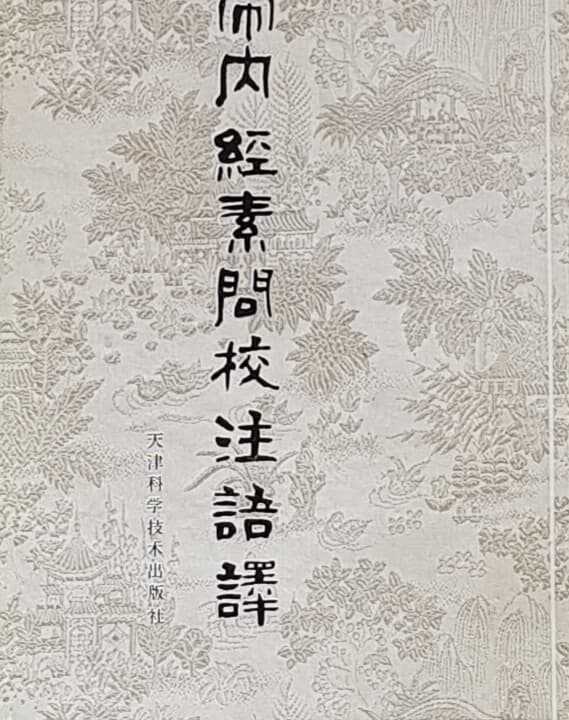 帝内經素問校注語譯
天津科学技术出版社